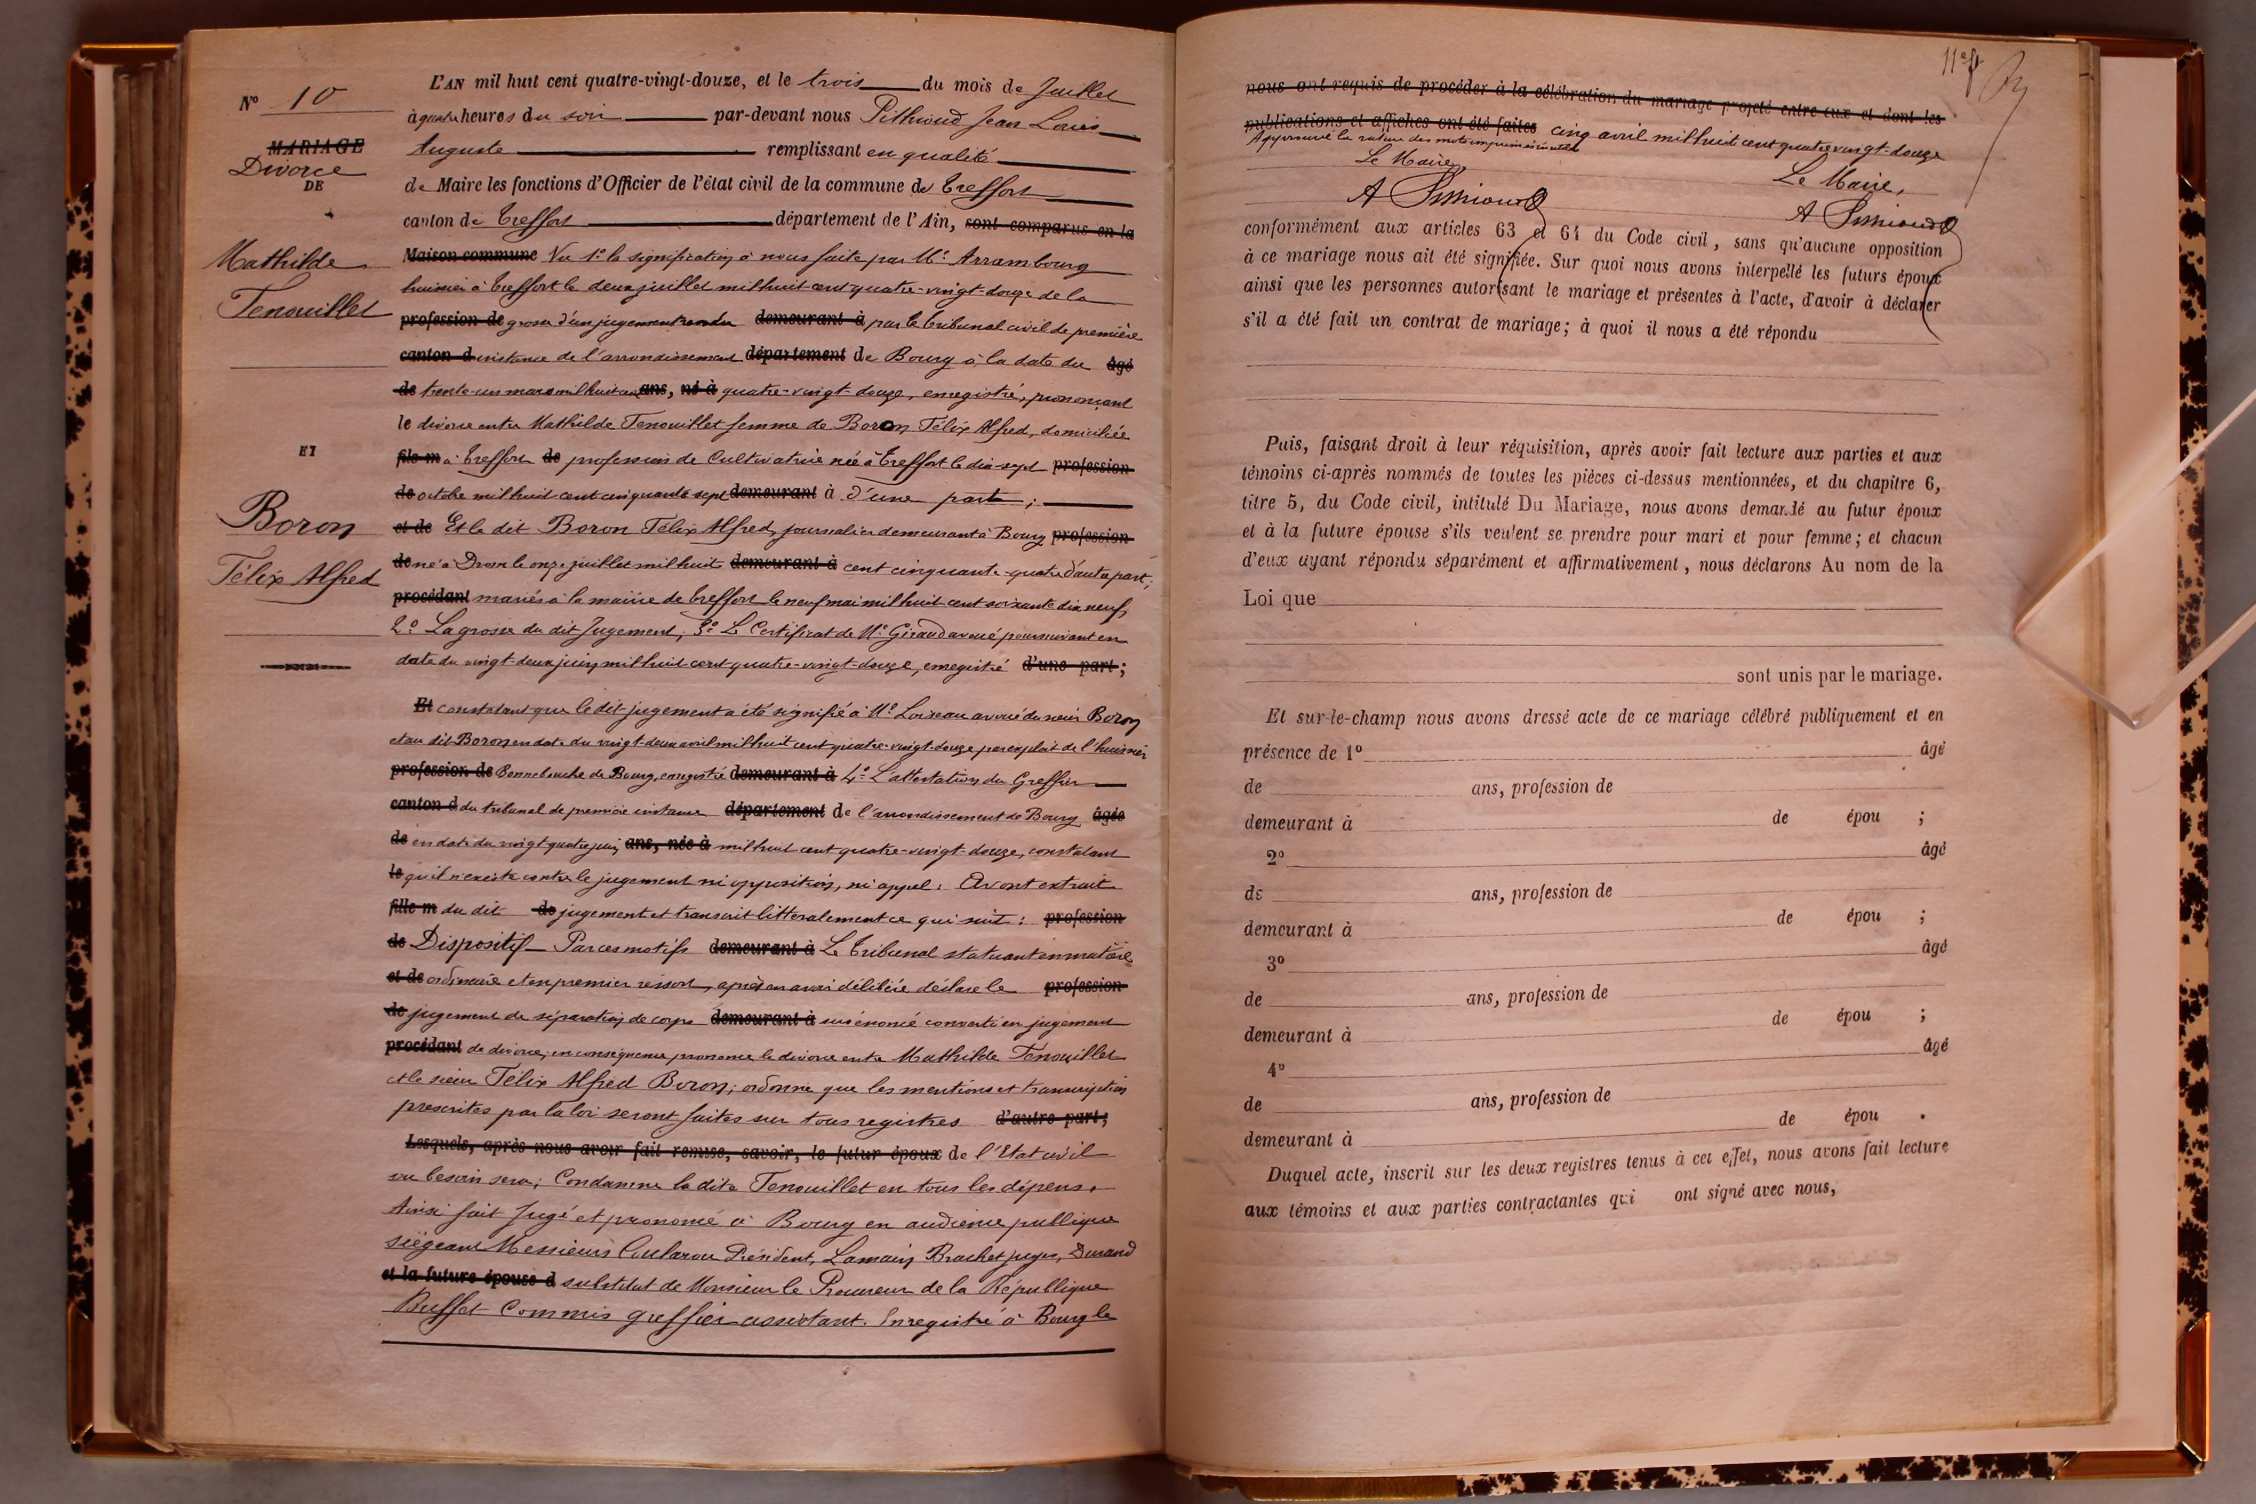 N° 10
MARIAGE
Divorce
DE
Mathilde
Tenouillet
ET
Boron
Félix Alfred
L'AN mil huit cent quatre-vingt-douze, et le trois du mois de Juillet
à quatre heures du soir par-devant nous Pithioud Jean Louis
Auguste remplissant en qualité
de Maire les fonctions d'Officier de l'état civil de la commune de Treffort
canton de Treffort département de l'Ain, sont comparus en la
Maison commune Vu 1° la signification à nous faite par Me Arrambourg
huissier à Treffort le deux juillet mil huit cent quatre-vingt-douze de la
profession de grosse d'un jugement rendu demeurant à par le tribunal civil de première
canton d instance de l'arrondissement département de Bourg à la date du âgé
de trente-un mars mil huit cent ans, né à quatre-vingt-douze, enregistré, prononçant
le divorce entre Mathilde Tenouillet femme de Boron Félix Alfred, domiciliée
fils m à Treffort de profession de Cultivatrice née à Treffort le dix-sept profession
de octobre mil huit cent cinquante sept demeurant à d'une part ;
et de Et le dit Boron Félix Alfred, journalier demeurant à Bourg profession
de né à Drom le onze juillet mil huit demeurant à cent cinquante-quatre d'autre part ;
procédant mariés à la mairie de Treffort le neuf mai mil huit cent soixante dix neuf,
2° La grosse du dit Jugement ; 3° Le Certificat de Me Giraud avoué poursuivant en
date du vingt-deux juin mil huit cent quatre-vingt-douze, enregistré d'une part ;
Et constatant que le dit jugement a été signifié à Me Loiseau avoué du sieur Boron
et au dit Boron en date du vingt-deux avril mil huit cent quatre-vingt-douze par exploit de l'huissier
profession de Bonnebouche de Bourg, enregistré demeurant à 4° L'attestation du Greffier
canton d du tribunal de première instance département de l'arrondissement de Bourg âgée
de en date du vingt quatre juin ans, née à mil huit cent quatre-vingt-douze, constatant
le qu'il n'existe contre le jugement ni opposition, ni appel. Avons extrait
fille m du dit de jugement et transcrit littéralement ce qui suit : profession
de Dispositif Par ces motifs demeurant à Le Tribunal statuant en matière
et de ordinaire et en premier ressort, après en avoir délibéré déclare le profession
de jugement de séparation de corps demeurant à susénoncé converti en jugement
procédant de divorce, en conséquence prononce le divorce entre Mathilde Tenouillet
et le sieur Félix Alfred Boron ; ordonne que les mentions et transcription
prescrites par la loi seront faites sur tous registres d'autre part ;
Lesquels, après nous avoir fait remise, savoir, le futur époux de l'Etat civil
ou besoin sera ; Condamne la dite Tenouillet en tous les dépens.
Ainsi fait Jugé et prononcé à Bourg en audience publique
siégeant Messieurs Président, Lamain Brachet juges, Durand
et la future épouse d substitut de Monsieur le Procureur de la République
Buffet Commis greffier assistant. Enregistré à Bourg le
nous ont requis de procéder à la célébration du mariage projeté entre eux et dont les
publications et affiches ont été faites cinq avril mil huit cent quatre vingt-douze
Approuvé la rature des mots imprimés inutiles
Le Maire, Le Maire,
A Pithioud A Pithioud
conformément aux articles 63 et 64 du Code civil, sans qu'aucune opposition
à ce mariage nous ait été signifiée. Sur quoi nous avons interpellé les futurs époux
ainsi que les personnes autorisant le mariage et présentes à l'acte, d'avoir à déclarer
s'il a été fait un contrat de mariage; à quoi il nous a été répondu
Puis, faisant droit à leur réquisition, après avoir fait lecture aux parties et aux
témoins ci-après nommés de toutes les pièces ci-dessus mentionnées, et du chapitre 6,
titre 5, du Code civil, intitulé Du Mariage, nous avons demandé au futur époux
et à la future épouse s'ils veulent se prendre pour mari et pour femme; et chacun
d'eux ayant répondu séparément et affirmativement, nous déclarons Au nom de la
Loi que
sont unis par le mariage.
Et sur-le-champ nous avons dressé acte de ce mariage célébré publiquement et en
présence de 1° âgé
de ans, profession de
demeurant à de épou ;
2° âgé
de ans, profession de
demeurant à de épou ;
3° âgé
de ans, profession de
demeurant à de épou ;
4° âgé
de ans, profession de
demeurant à de épou .
Duquel acte, inscrit sur les deux registres tenus à cet effet, nous avons fait lecture
aux témoins et aux parties contractantes qui ont signé avec nous,